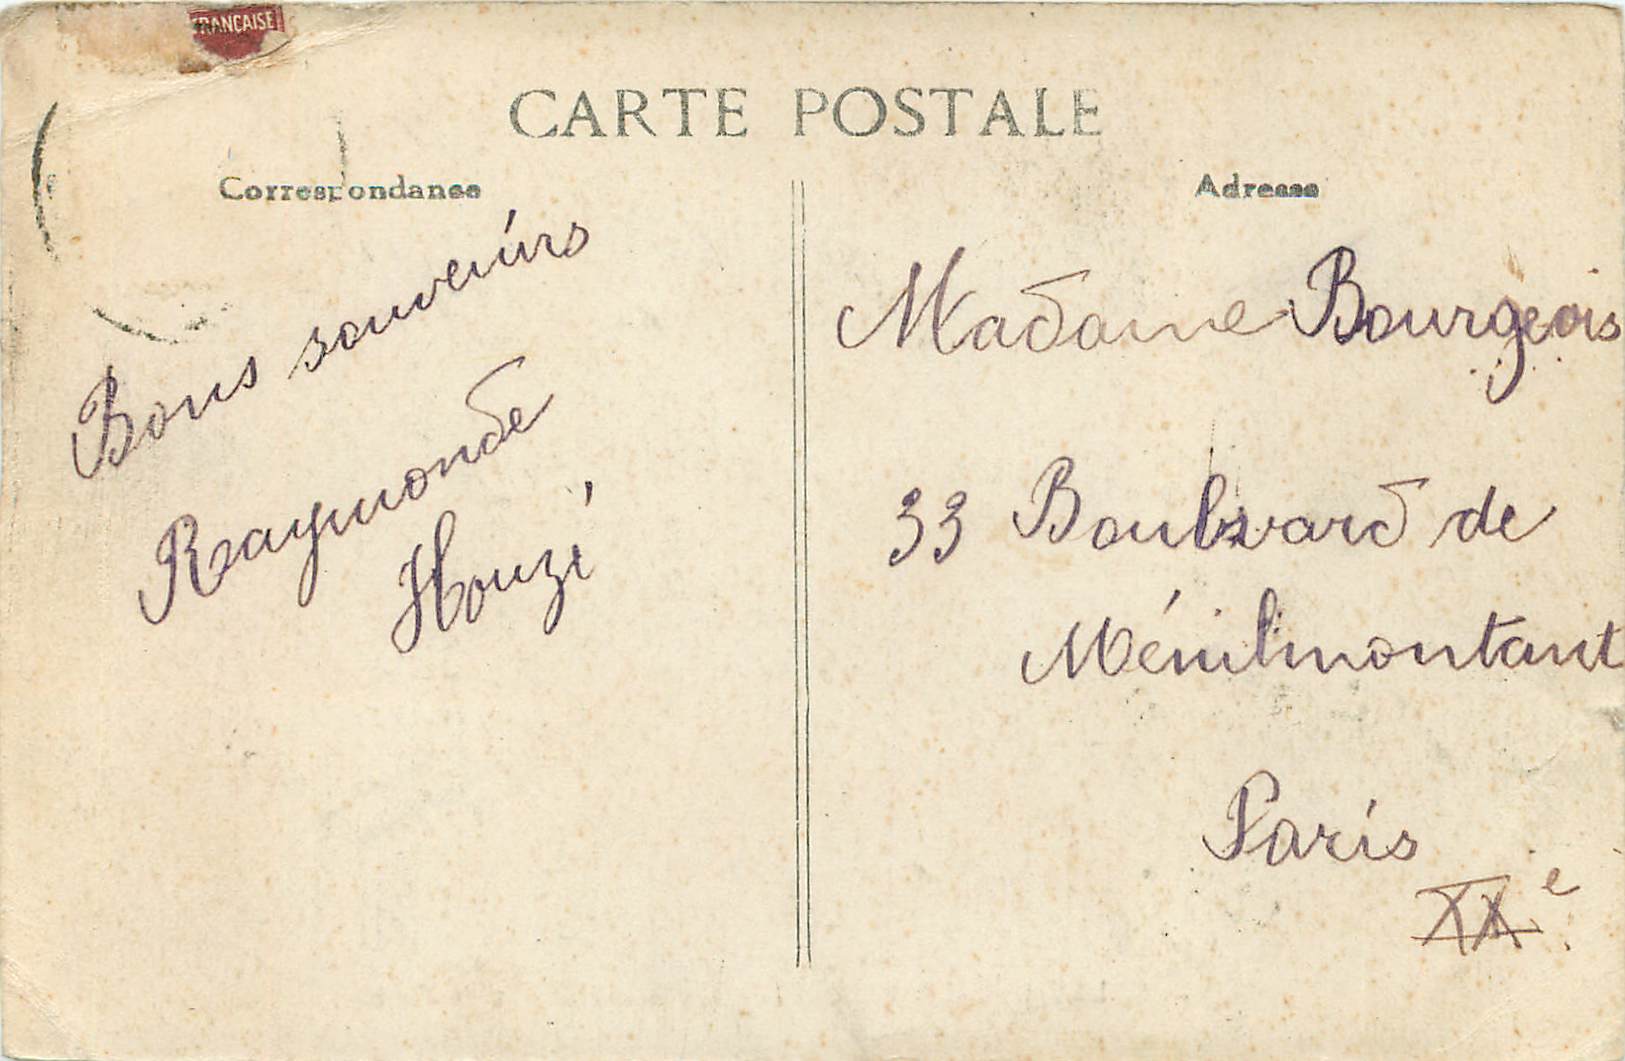 FRANÇAISE
CARTE POSTALE
Correspondance
Adresse
Bons souvenirs
Raymonde
Houzé
Madame Bourgeois
33 Boulevard de
Ménilmontant
Paris
XXe